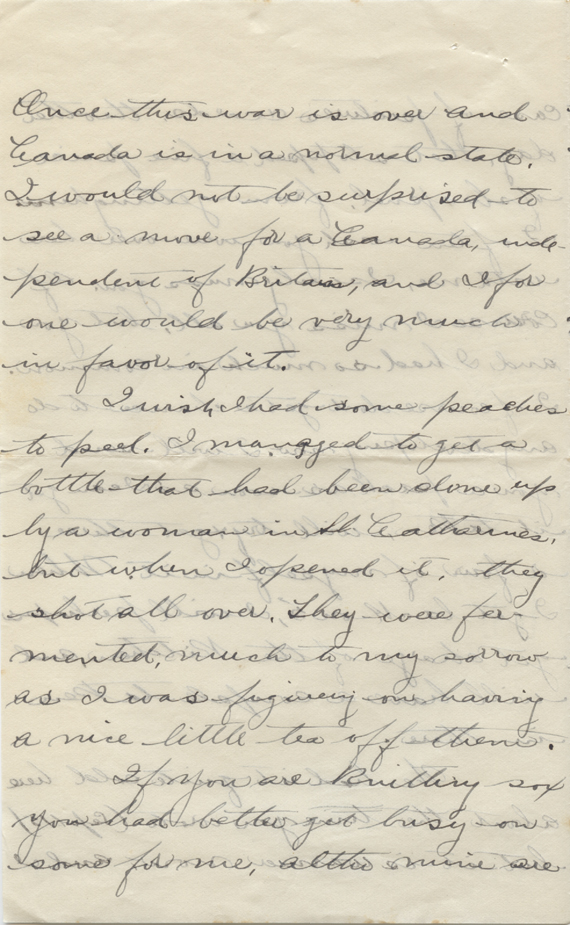 Once this war is over and
Canada is in a normal state.
I would not be surprised to
see a move for a Canada, inde-
pendent of Britain, and I for
one would be very much
in favor of it.
I wish I had some peaches
to peel. I managed to get a
bottle that had been done up
by a woman in St Catharines,
but when I opened it, they
shot all over. They were fer-
mented, much to my sorrow
as I was figiving on having
a nice little tea off them.
If you are Knitting sox
you had better get busy on
some for me, altho mine are